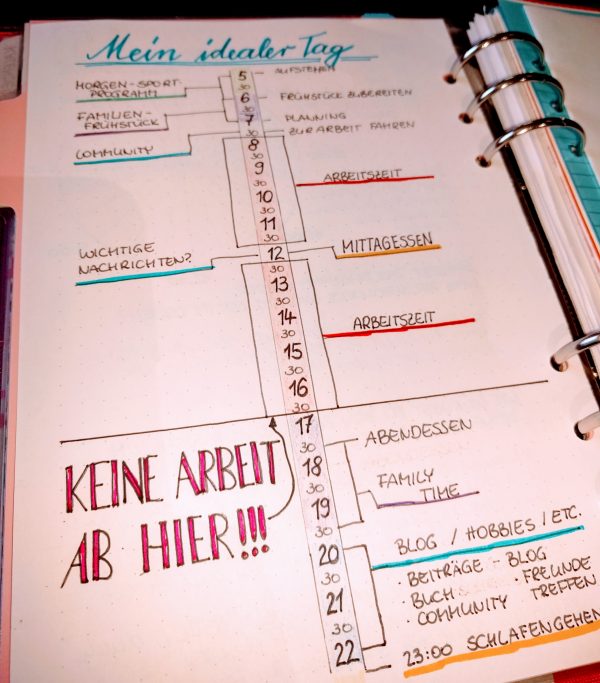 Mein idealer Tag
5
AUFSTEHEN
MORGEN-SPORT-
PROGRAMM
30
6
FRÜHSTÜCK ZUBEREITEN
30
FAMILIEN-
FRÜHSTÜCK
7
PLANNING
30
ZUR ARBEIT FAHREN
COMMUNITY
8
30
9
ARBEITSZEIT
30
10
30
11
30
WICHTIGE
NACHRICHTEN?
12
MITTAGESSEN
30
13
30
14
ARBEITSZEIT
30
15
30
16
30
17
KEINE ARBEIT
AB HIER!!!
30
ABENDESSEN
18
30
FAMILY
TIME
19
30
20
BLOG / HOBBIES / ETC.
30
· BEITRÄGE - BLOG
21
· BUCH
· FREUNDE
TREFFEN
30
· COMMUNITY
22
23:00 SCHLAFENGEHEN